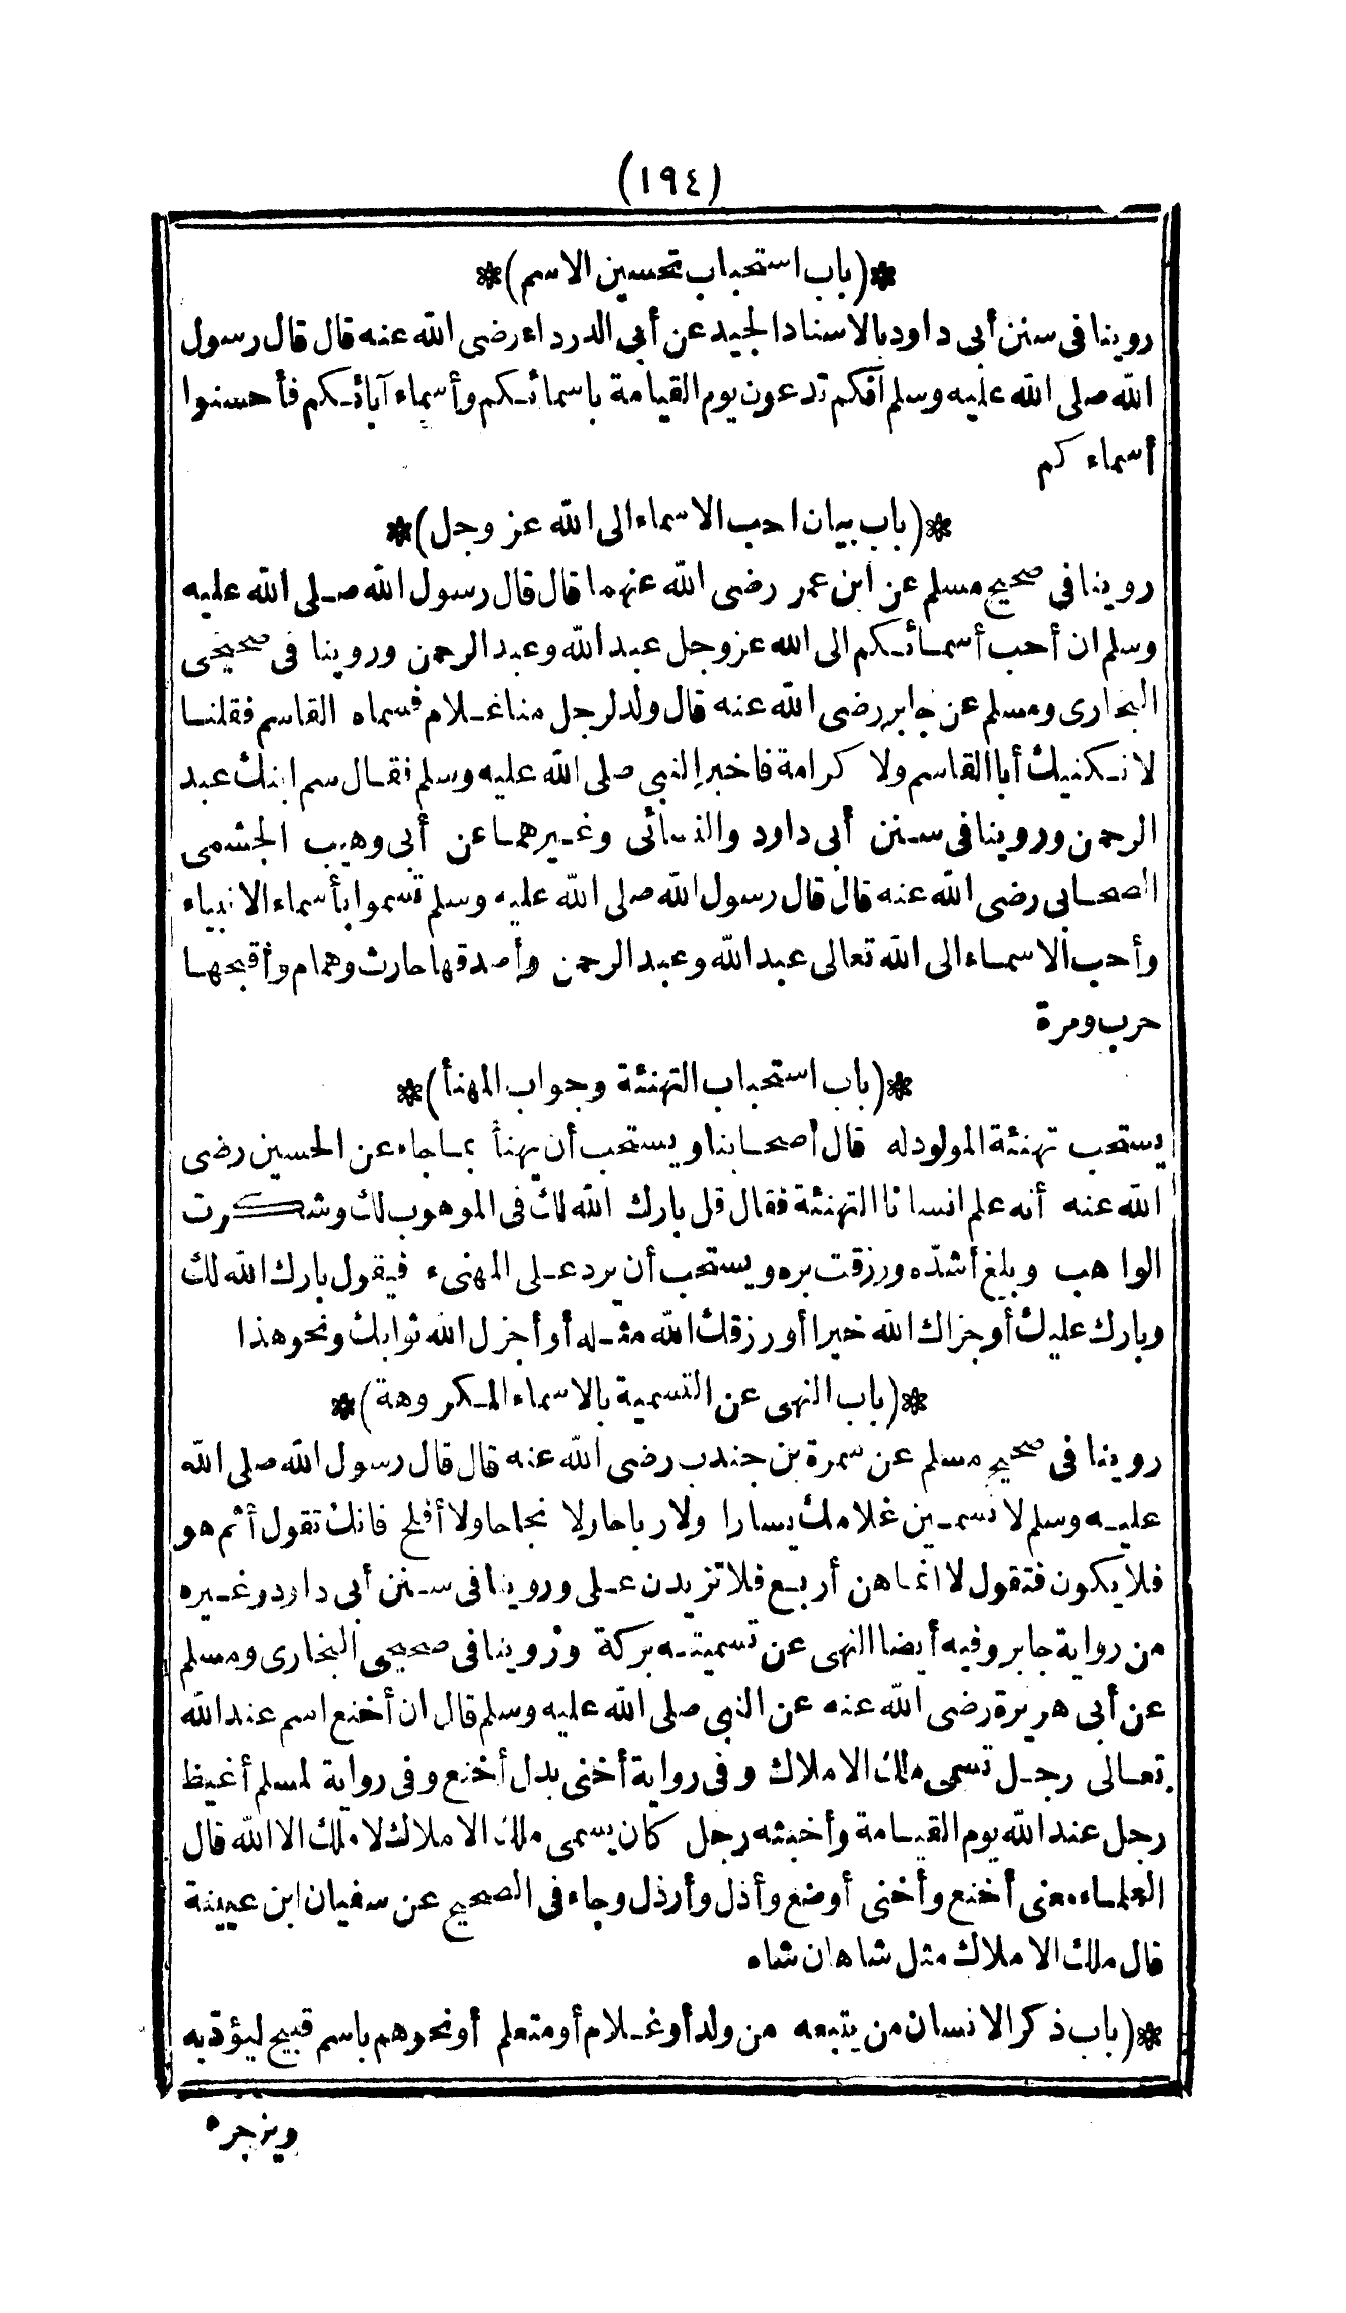 (١٩٤)
*(باب استحباب تحسين الاسم)*
روينا فى سنن أبى داود بالاسناد الجيد عن أبى الدرداء رضى الله عنه قال قال رسول
الله صلى الله عليه وسلم انكم تدعون يوم القيامة باسمائكم وأسماء آبائكم فأحسنوا
أسماءكم
*(باب بيان احب الاسماء الى الله عز وجل)*
روينا فى صحيح مسلم عن ابن عمر رضى الله عنهما قال قال رسول الله صلى الله عليه
وسلم ان أحب أسمائكم الى الله عز وجل عبد الله وعبد الرحمن وروينا فى صحيحى
البخارى ومسلم عن جابر رضى الله عنه قال ولد لرجل منا غلام فسماه القاسم فقلنا
لا نكنيك أبا القاسم ولا كرامة فاخبر النبى صلى الله عليه وسلم فقال سم ابنك عبد
الرحمن وروينا فى سنن أبى داود والنسائى وغيرهما عن أبى وهيب الجشمى
الصحابى رضى الله عنه قال قال رسول الله صلى الله عليه وسلم تسموا بأسماء الانبياء
وأحب الاسماء الى الله تعالى عبد الله وعبد الرحمن وأصدقها حارث وهمام وأقبحها
حرب ومرة
*(باب استحباب التهنئة وجواب المهنأ)*
يستحب تهنئة المولود له قال أصحابنا ويستحب أن يهنأ بما جاء عن الحسين رضى
الله عنه أنه علم انسانا التهنئة فقال قل بارك الله لك فى الموهوب لك وشكرت
الواهب وبلغ أشدّه ورزقت بره ويستحب أن يرد على المهنىء فيقول بارك الله لك
وبارك عليك أو جزاك الله خيرا أو رزقك الله مثله أو أجزل الله ثوابك ونحو هذا
*(باب النهى عن التسمية بالاسماء المكروهة)*
روينا فى صحيح مسلم عن سمرة بن جندب رضى الله عنه قال قال رسول الله صلى الله
عليه وسلم لا تسمين غلامك يسارا ولا رباحا ولا نجاحا ولا أفلح فانك تقول أثم هو
فلا يكون فتقول لا انما هن أربع فلا تزيدن على وروينا فى سنن أبى داود وغيره
من رواية جابر وفيه أيضا النهى عن تسميته بركة وروينا فى صحيحى البخارى ومسلم
عن أبى هريرة رضى الله عنه عن النبى صلى الله عليه وسلم قال ان أخنع اسم عند الله
تعالى رجل تسمى ملك الاملاك وفى رواية أخنى بدل أخنع وفى رواية لمسلم أغيظ
رجل عند الله يوم القيامة وأخبثه رجل كان يسمى ملك الاملاك لا ملك الا الله قال
العلماء معنى أخنع وأخنى أوضع وأذل وأرذل وجاء فى الصحيح عن سفيان ابن عيينة
قال ملك الاملاك مثل شاهان شاه
*(باب ذكر الانسان من يتبعه من ولد أو غلام أو متعلم أو نحوهم باسم قبيح ليؤدبه
ويزجره